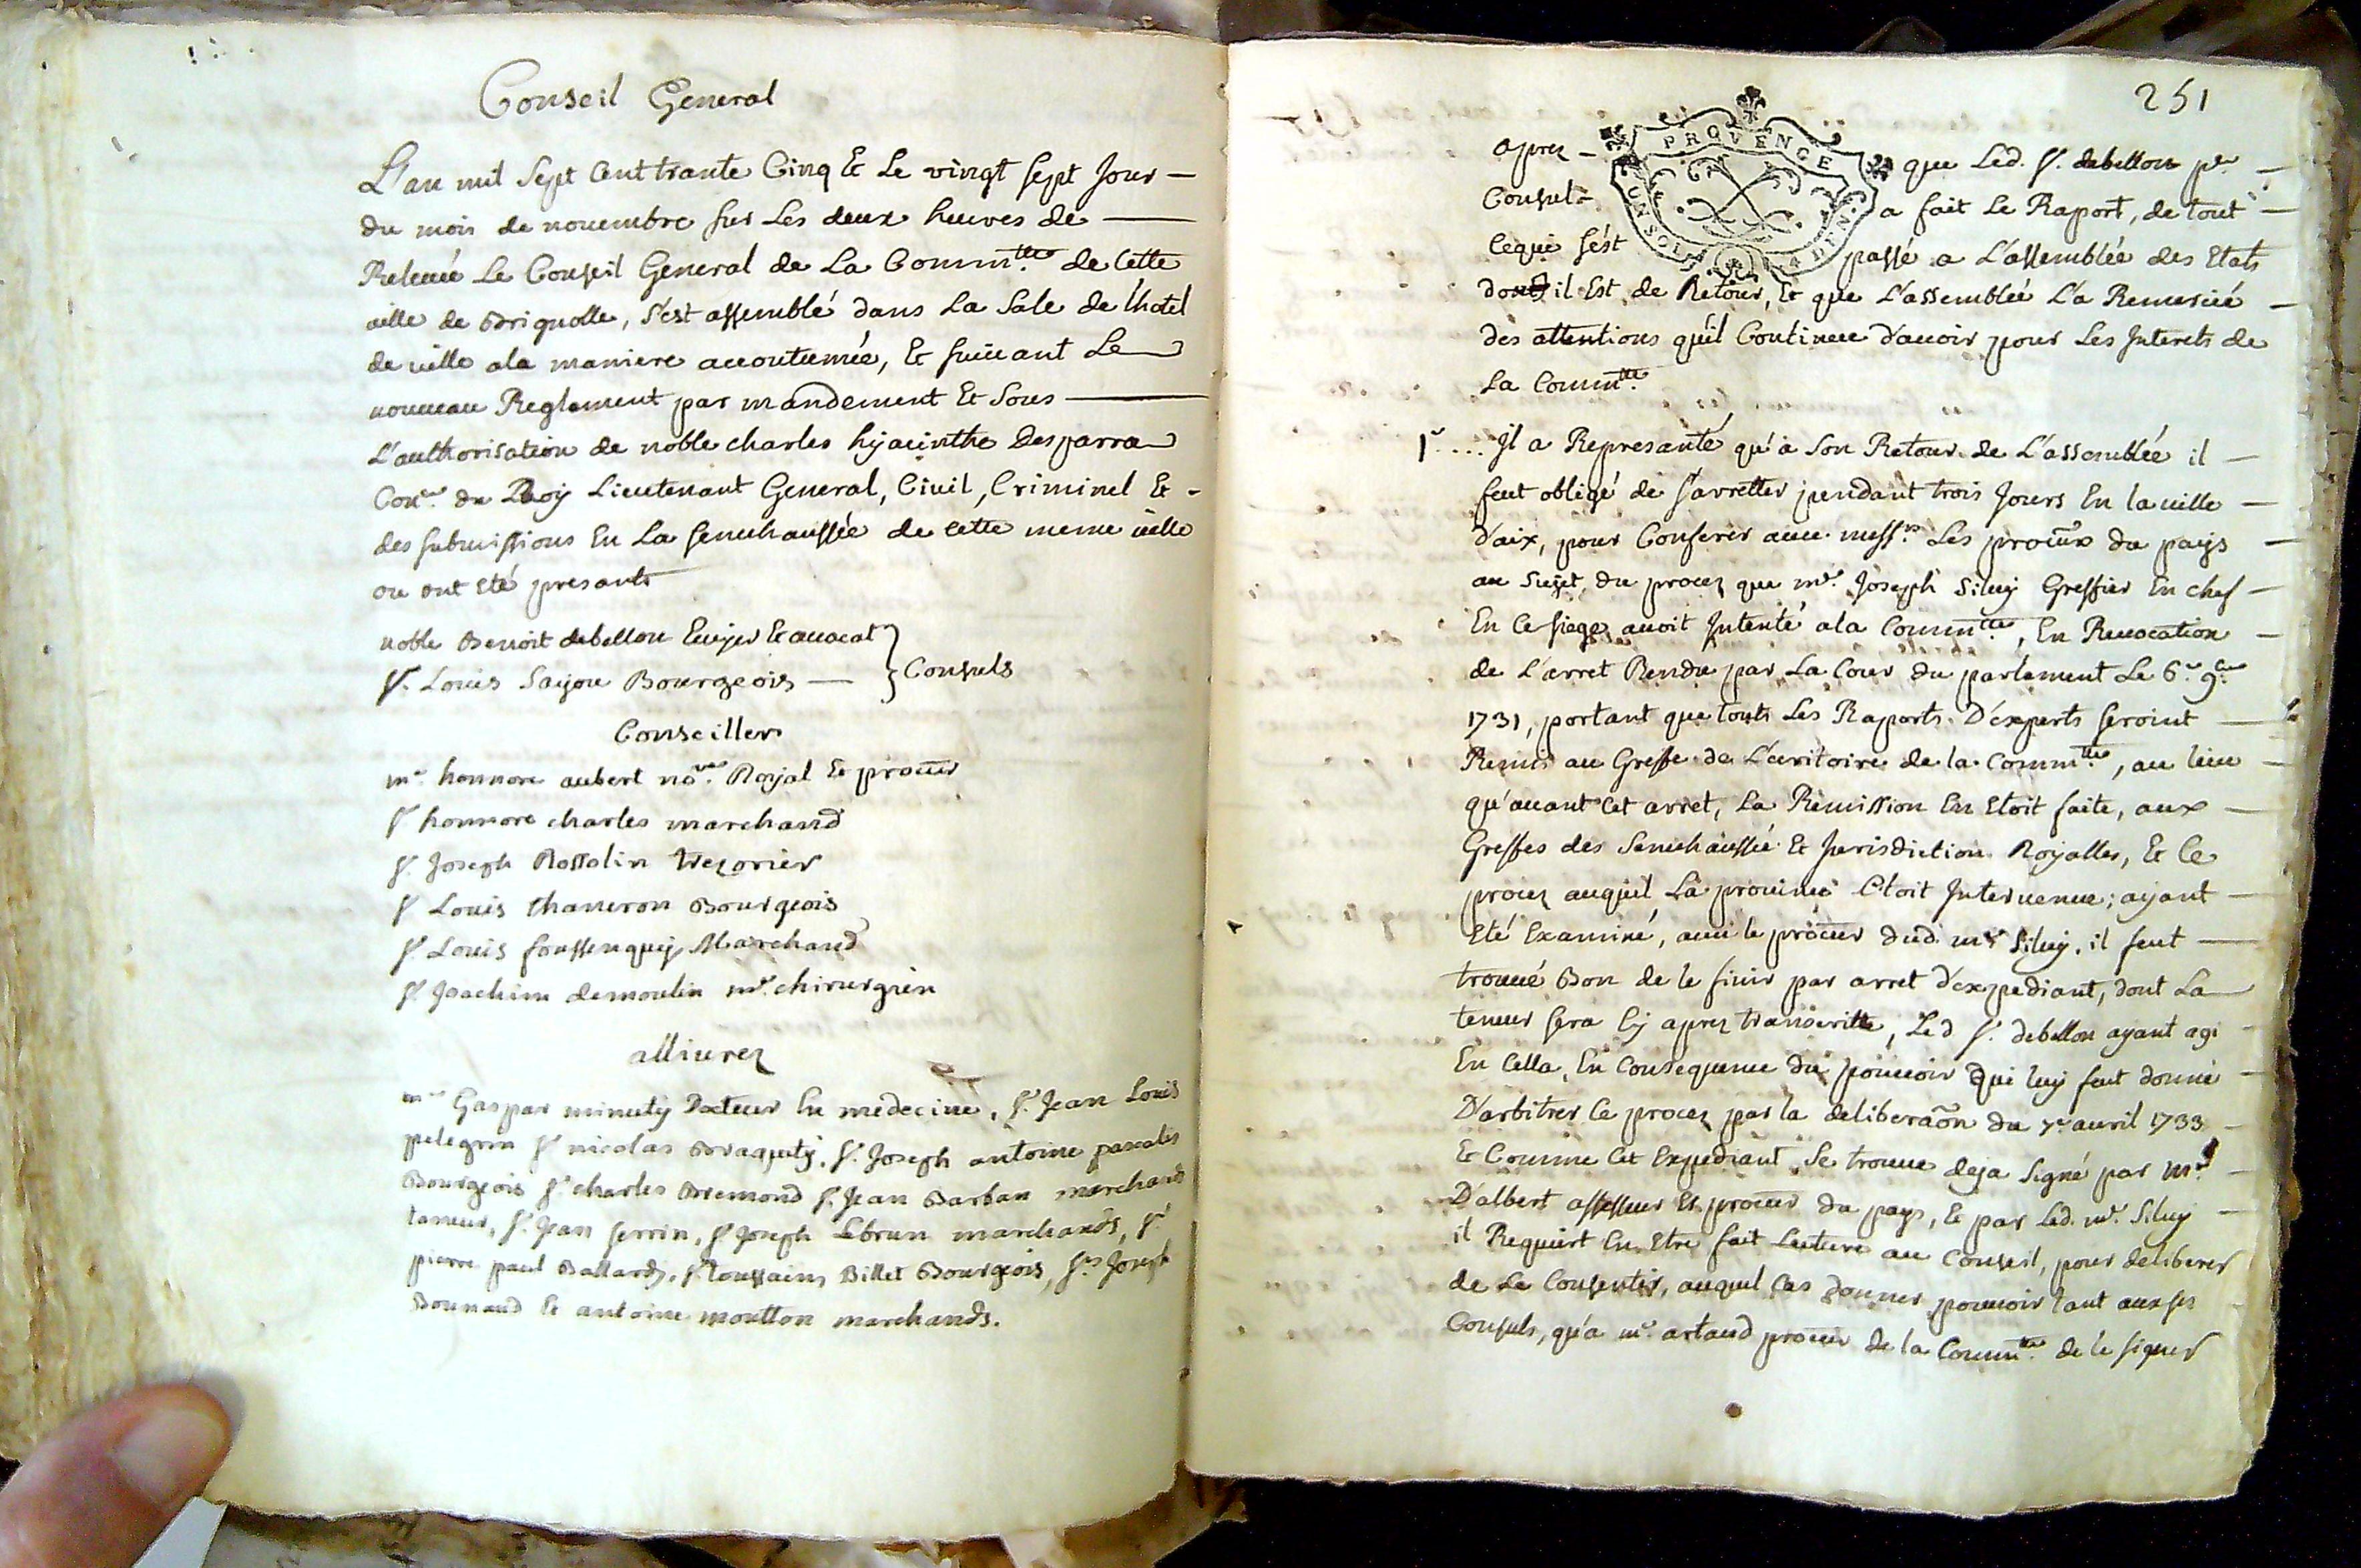 Conseil General
L'an mil Sept Cent trante Cinq Et Le vingt Sept Jour
du mois de nouembre sur Les deux heures de
Releuée Le Conseil General de La Comm.té de Cette
uille de Brignolle, s'est assemblé dans La Sale de l'hotel
de uille a la maniere accoutumée, Et suiuant Le
nouueau Reglement par mandement Et Sous
L'authorisation de noble charles hyacinthe Desparra
Con.er du Roy Lieutenant General, Ciuil, Criminel Et
des submissions En La senechaussée de cette meme uille
ou ont eté presants
noble Benoit debellon Ecuyer Et auocat
S.r Louis Sayou Bourgeois
Consuls
Conseillers
m.e honnore aubert no.re Royal Et procur
S.r honnore charles marchand
S.r Joseph Rossolin trezorier
S.r Louis thaneron Bourgeois
S.r Louis foussenquy Marchand
S.r Joachim demoulin m.e chirurgien
alliurez
m.e Gaspar minuty Docteur En medecine, S.r Jean Louis
pelegrin S.r nicolas Braquety, S.r Joseph antoine pascalis
Bourgeois S.r charles Bremond S.r Jean Barban marchands
tanneur, S.r Jean serrin, S.r Joseph Lebrun marchands, S.r
pierre paul Ballardy, S.r toussains Billet Bourgeois, S.rs Joseph
Bounaud Et antoine moutton marchands.
251
PROVENCE
apres que Led. S.r debellon p.er
Consul a fait Le Raport, de tout
Ce qui s'est passé a L'assemblée des Etats
dond il Est de Retour, Et que L'assemblée L'a Remercié
des attentions qu'il Continue d'auoir pour Les Interets de
La Comm.té
1.° .... Il a Represanté qu'a Son Retour de L'assemblée il
feut obligé de s'arretter pendant trois Jours En la uille
d'aix, pour Conferer auec mess.rs Les procurs du pays
au Sujet du procez que m.e Joseph Siluy Greffier En chef
En Ce siege auoit Intenté a la Comm.té, En Reuocation
de L'arret Rendu par La Cour du parlement Le 6.e 9.bre
1731, portant que touts Les Raports D'experts seroint
Remis au Greffe de L'ecritoire de la Comm.té, au lieu
qu'auant Cet arret, La Remission En Etoit faite, aux
Greffes des Senechaussée Et Jurisdiction Royalles, Et Ce
procez auquel La prouince Etoit Interuenue; ayant
Eté Examiné, auec le procur dud. m.e Siluy, il feut
trouué Bon de le finir par arret d'expediant, dont La
teneur sera Cy aprez transcritte, Led S.r debellon ayant agi
En Cella, En Consequence du pouuoir qui luy feut donné
D'arbitrer Ce procez par la deliberaõn du 7.e auril 1733
Et Comme Cet Expediant Se trouue deja Signé par m.r
D'albert assesseur Et procur du pays, Et par Led. m.e Siluy
il Requiert En Etre fait Lecture au Conseil, pour deliberer
de Le Consentir, auquel Cas donner pouuoir tant aux srs
Consuls, qu'a m.e artaud procur de la Comm.té de le signer